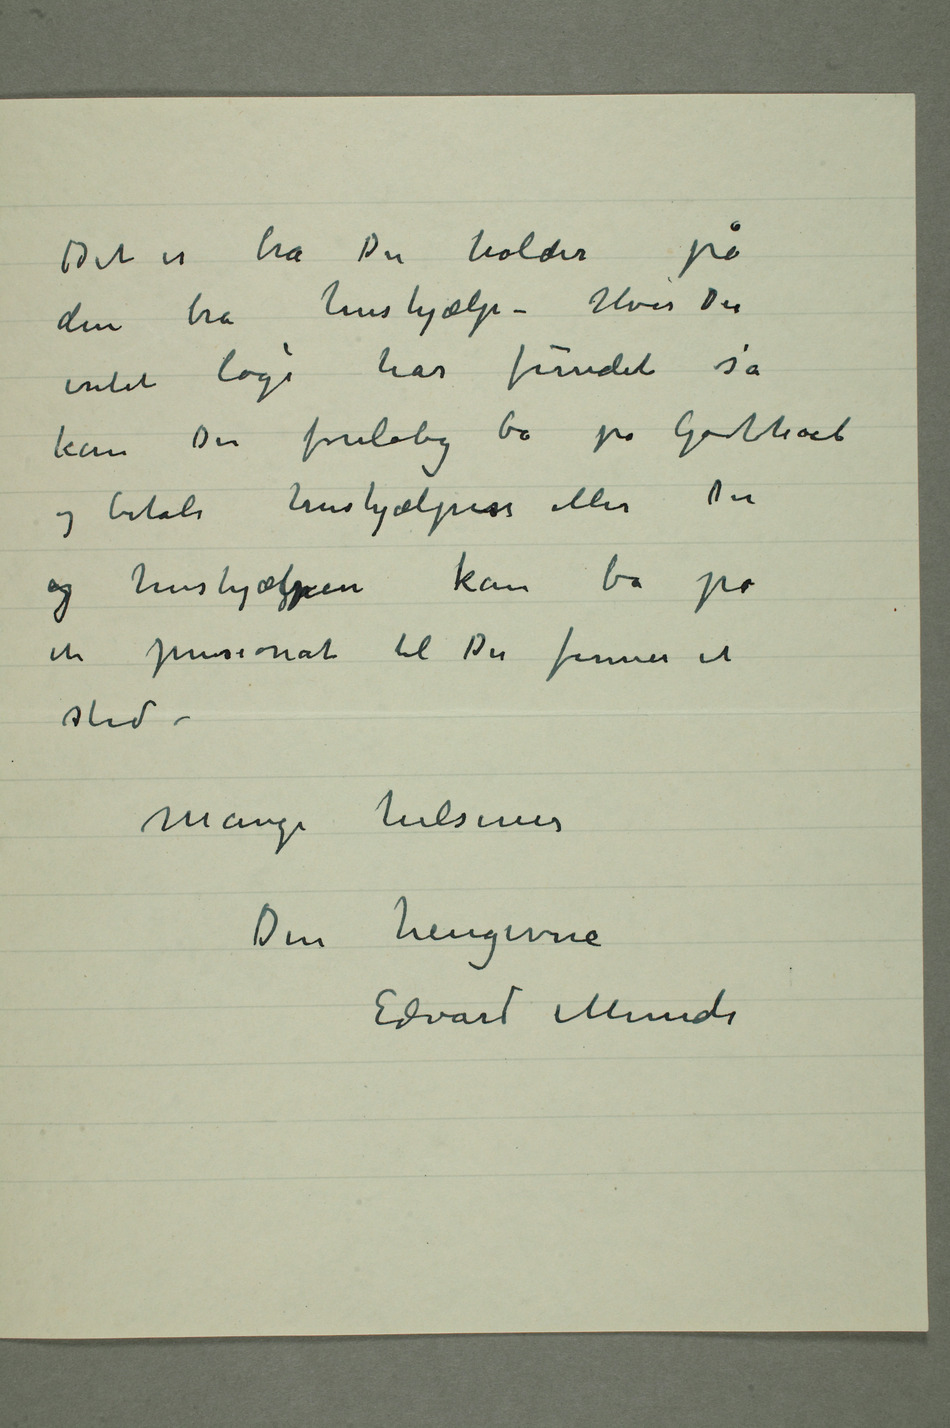 Det er bra Du holder på
den bra hushjælp – Hvis Du
intet logi har fundet så
kan Du foreløbig bo på Godthaab
og betale hushjælpen eller Du
og hushjælpen kan bo på
et pensionat til Du finner et
sted –
Mange hilsener
Din hengivne
Edvard Munch